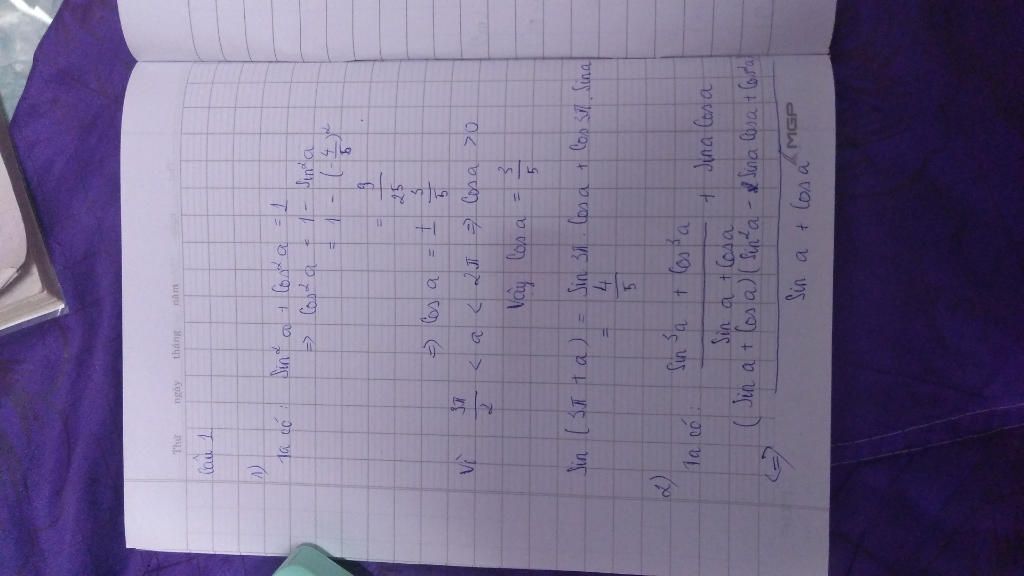 Thứ ngày tháng năm
Câu 1
1)
Ta có: Sin² a + Cos² a = 1
=> Cos² a = 1 - Sin² a
= 1 - (-4/5)²
= 9/25
=> Cos a = ± 3/5
Vì 3π/2 < a < 2π => Cos a > 0
Vậy Cos a = 3/5
Sin (3π + a) = Sin 3π . Cos a + Cos 3π . Sin a
= 4/5
2)
Ta có: Sin³a + Cos³a / Sin a + Cos a + Sin a Cos a
<=> (Sin a + Cos a) (Sin² a - Sin a Cos a + Cos² a
Sin a + Cos a
MGP